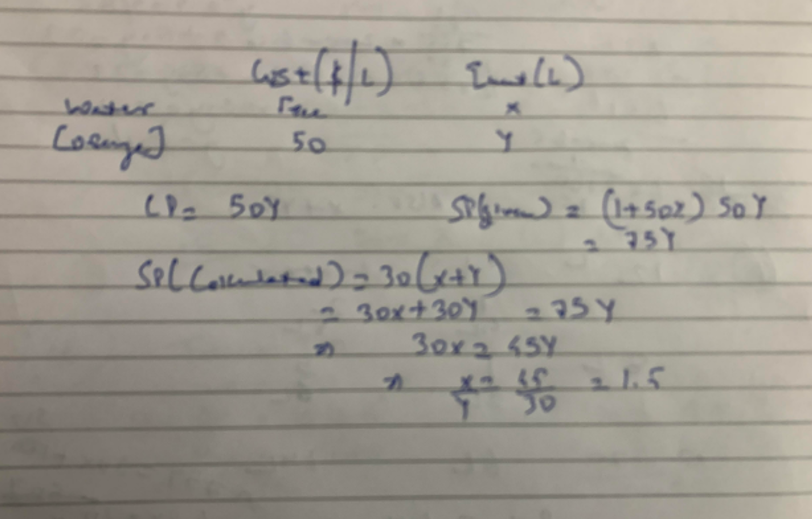 Cost ($/L) Quant (L)
Water Free x
[Orange] 50 Y
CP = 50Y SP(given) = (1+50%) 50Y
= 75Y
SP(Calculated) = 30(x+Y)
= 30x+30Y = 75Y
⇒ 30x = 45Y
⇒ x/Y = 45/30 = 1.5